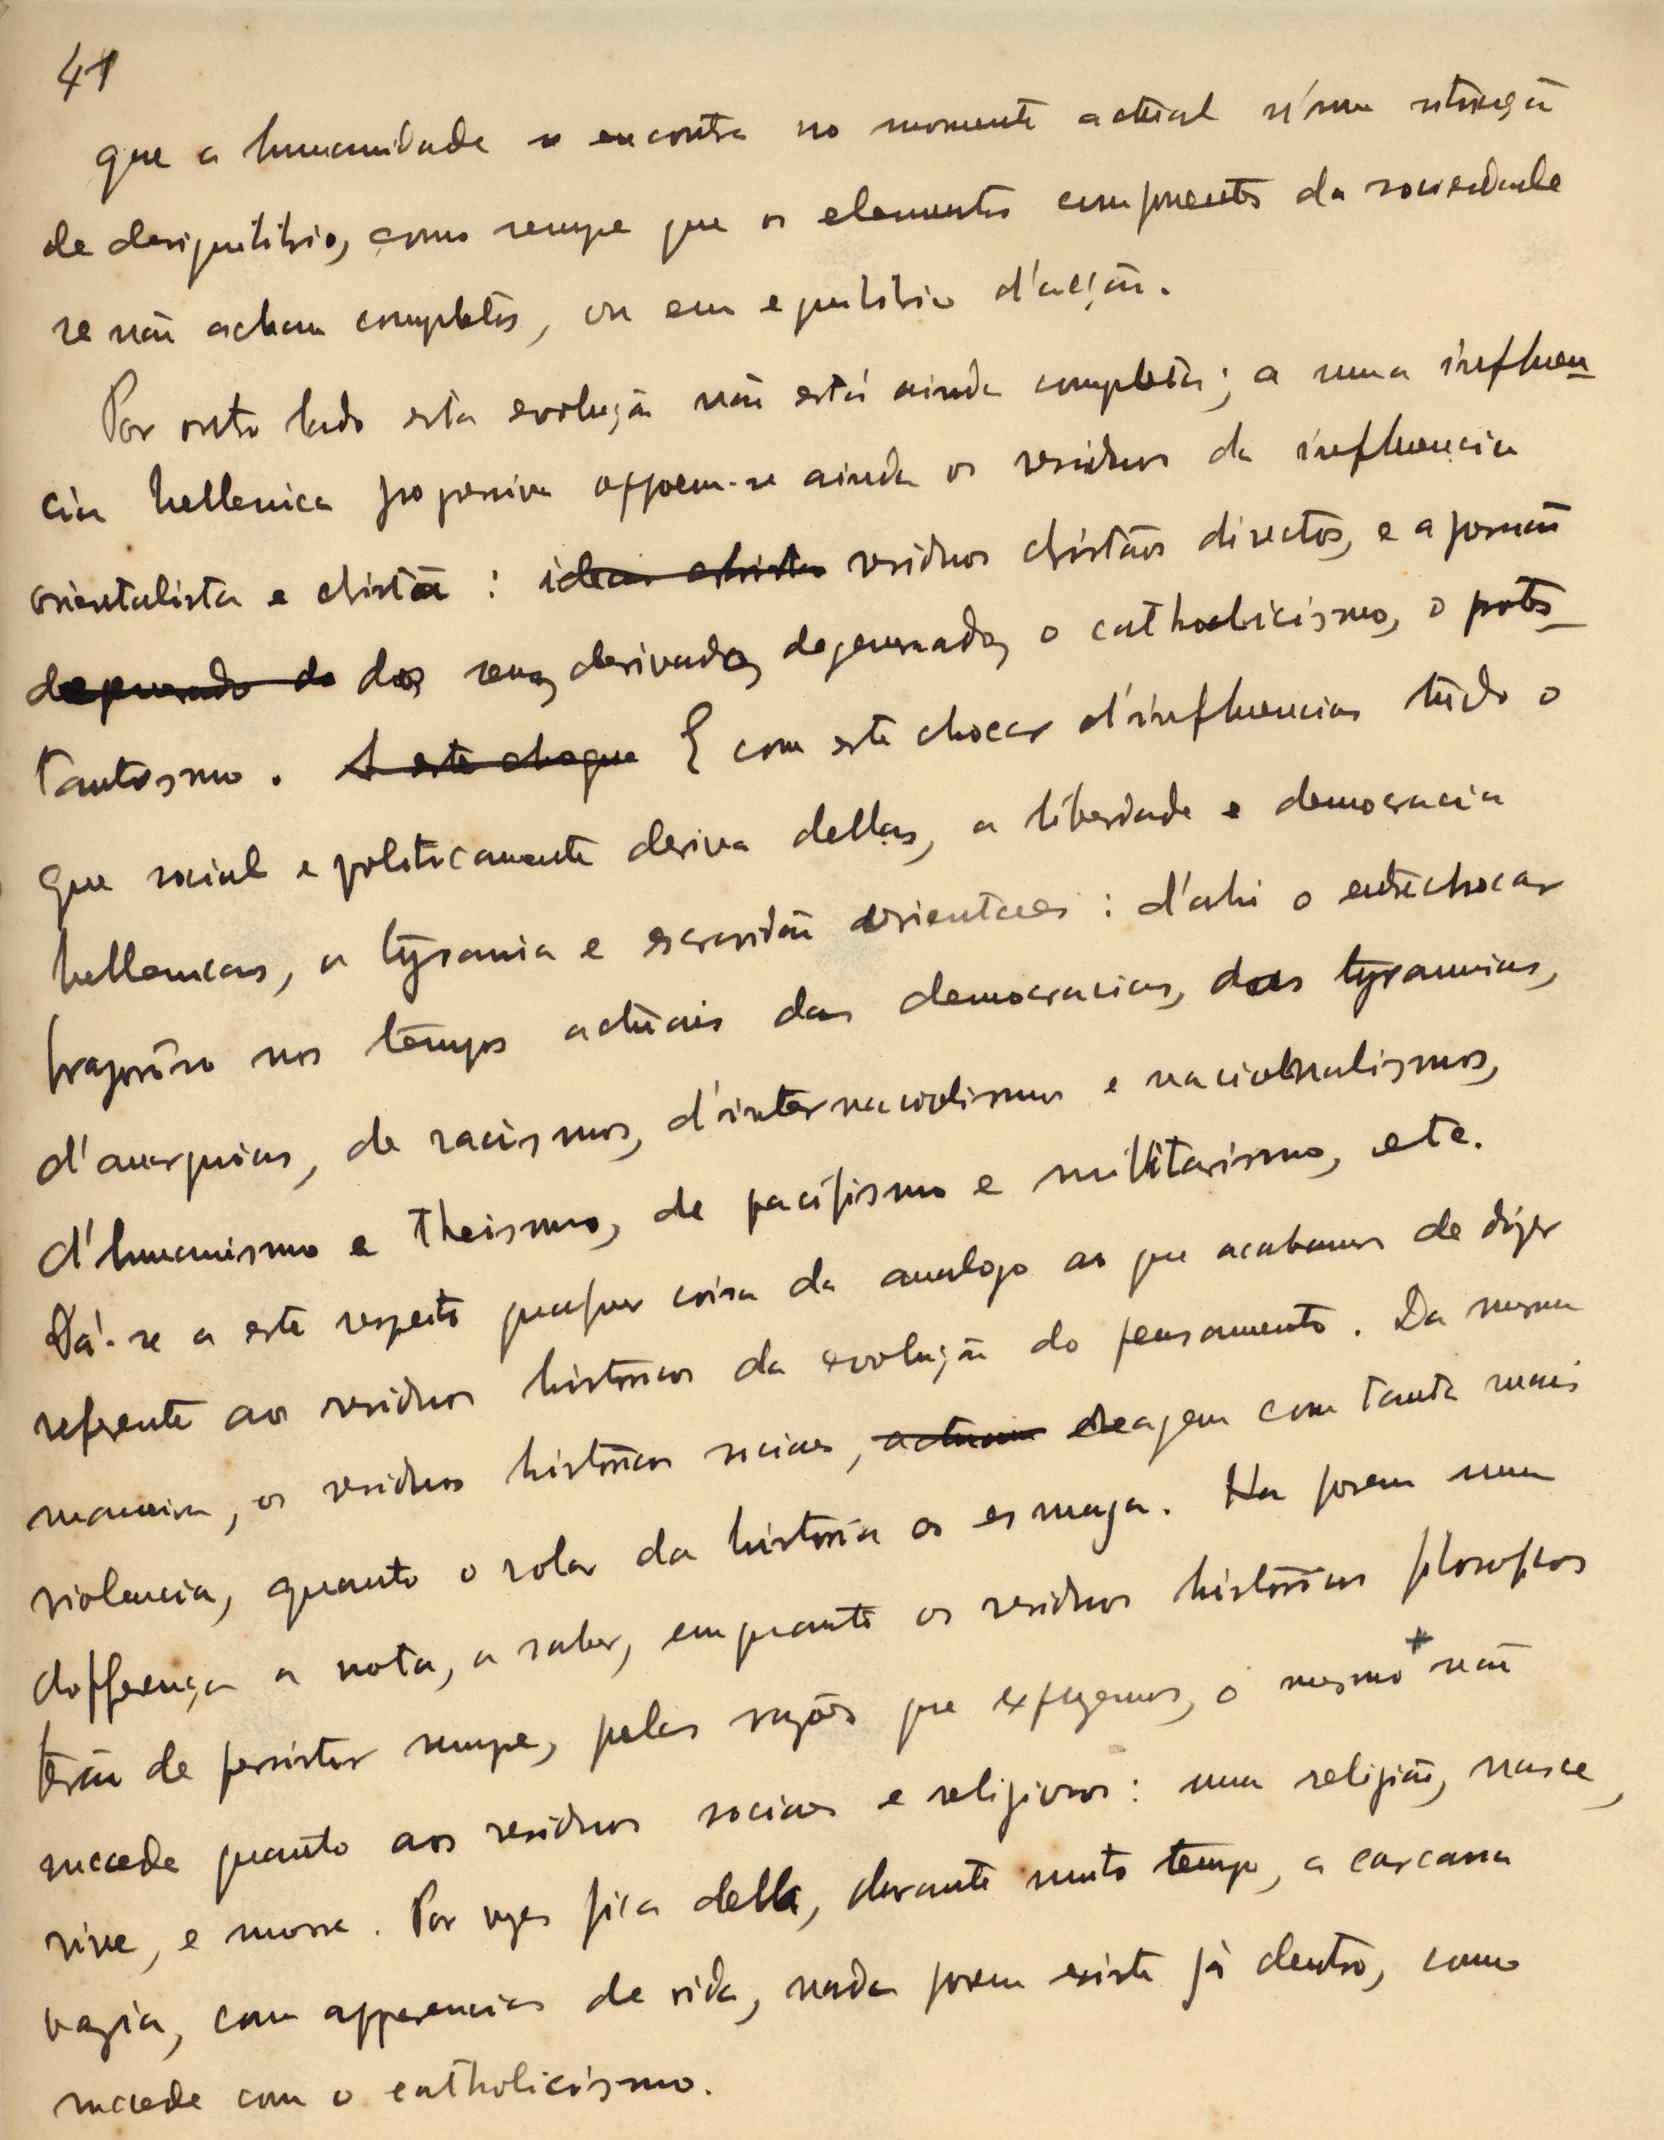 41
que a humanidade se encontra no momento actual n'uma situação
de desiquilibrio, como sempre que os elementos componentes da sociedade
se não acham completos, ou em equilibrio d'acção.
Por outro lado esta evolução não está ainda completa; a uma influen-
cia hellenica progressiva oppoem-se ainda os residuos da influencia
orientalista e christã : ideias christãs residuos christãos directos, e a pressão
degenerado do dos seus derivados degenerados, o catholicismo, o protes-
tantismo. A este choque E com este chocar d'influencias tudo o
que social e politicamente deriva dellas, a liberdade e democracia
hellenicas, a tyrania e escravidão orientaes : d'ahi o entrechocar
fragoroso nos tempos actuais das democracias, das tyrannias,
d'anarquias, de racismos, d'internaciolismos e nacionalismos,
d'humanismo e theismo, de pacifismo e militarismo, etc.
Dá-se a este respeito qualquer coisa de analogo ao que acabamos de dizer
referente aos residuos historicos da evolução do pensamento. Da mesma
maneira, os residuos historicos sociaes, actuam reagem com tanta mais
violencia, quanto o rolar da historia os esmaga. Ha porem uma
differença a notar, a saber, emquanto os residuos historicos filosoficos
terão de persistir sempre, pelas razões que expuzemos, o mesmo + não
sucede quanto aos residuos sociaes e religiosos : uma religião, nasce,
vive, e morre. Por vezes fica della, durante muito tempo, a carcassa
vazia, com apparencias de vida, nada porem existe já dentro, como
sucede com o catholicismo.